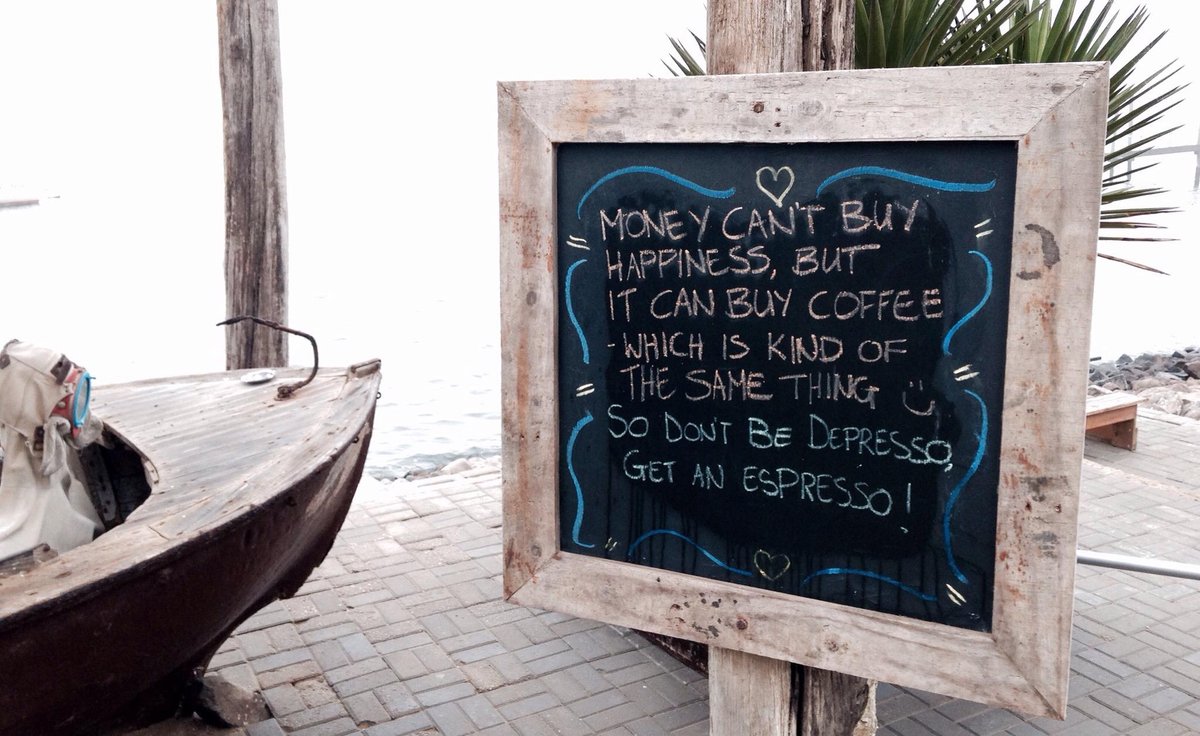 MONEY CAN'T BUY
HAPPINESS, BUT
IT CAN BUY COFFEE
- WHICH IS KIND OF
THE SAME THING
SO DON'T BE DEPRESSO,
GET AN ESPRESSO!